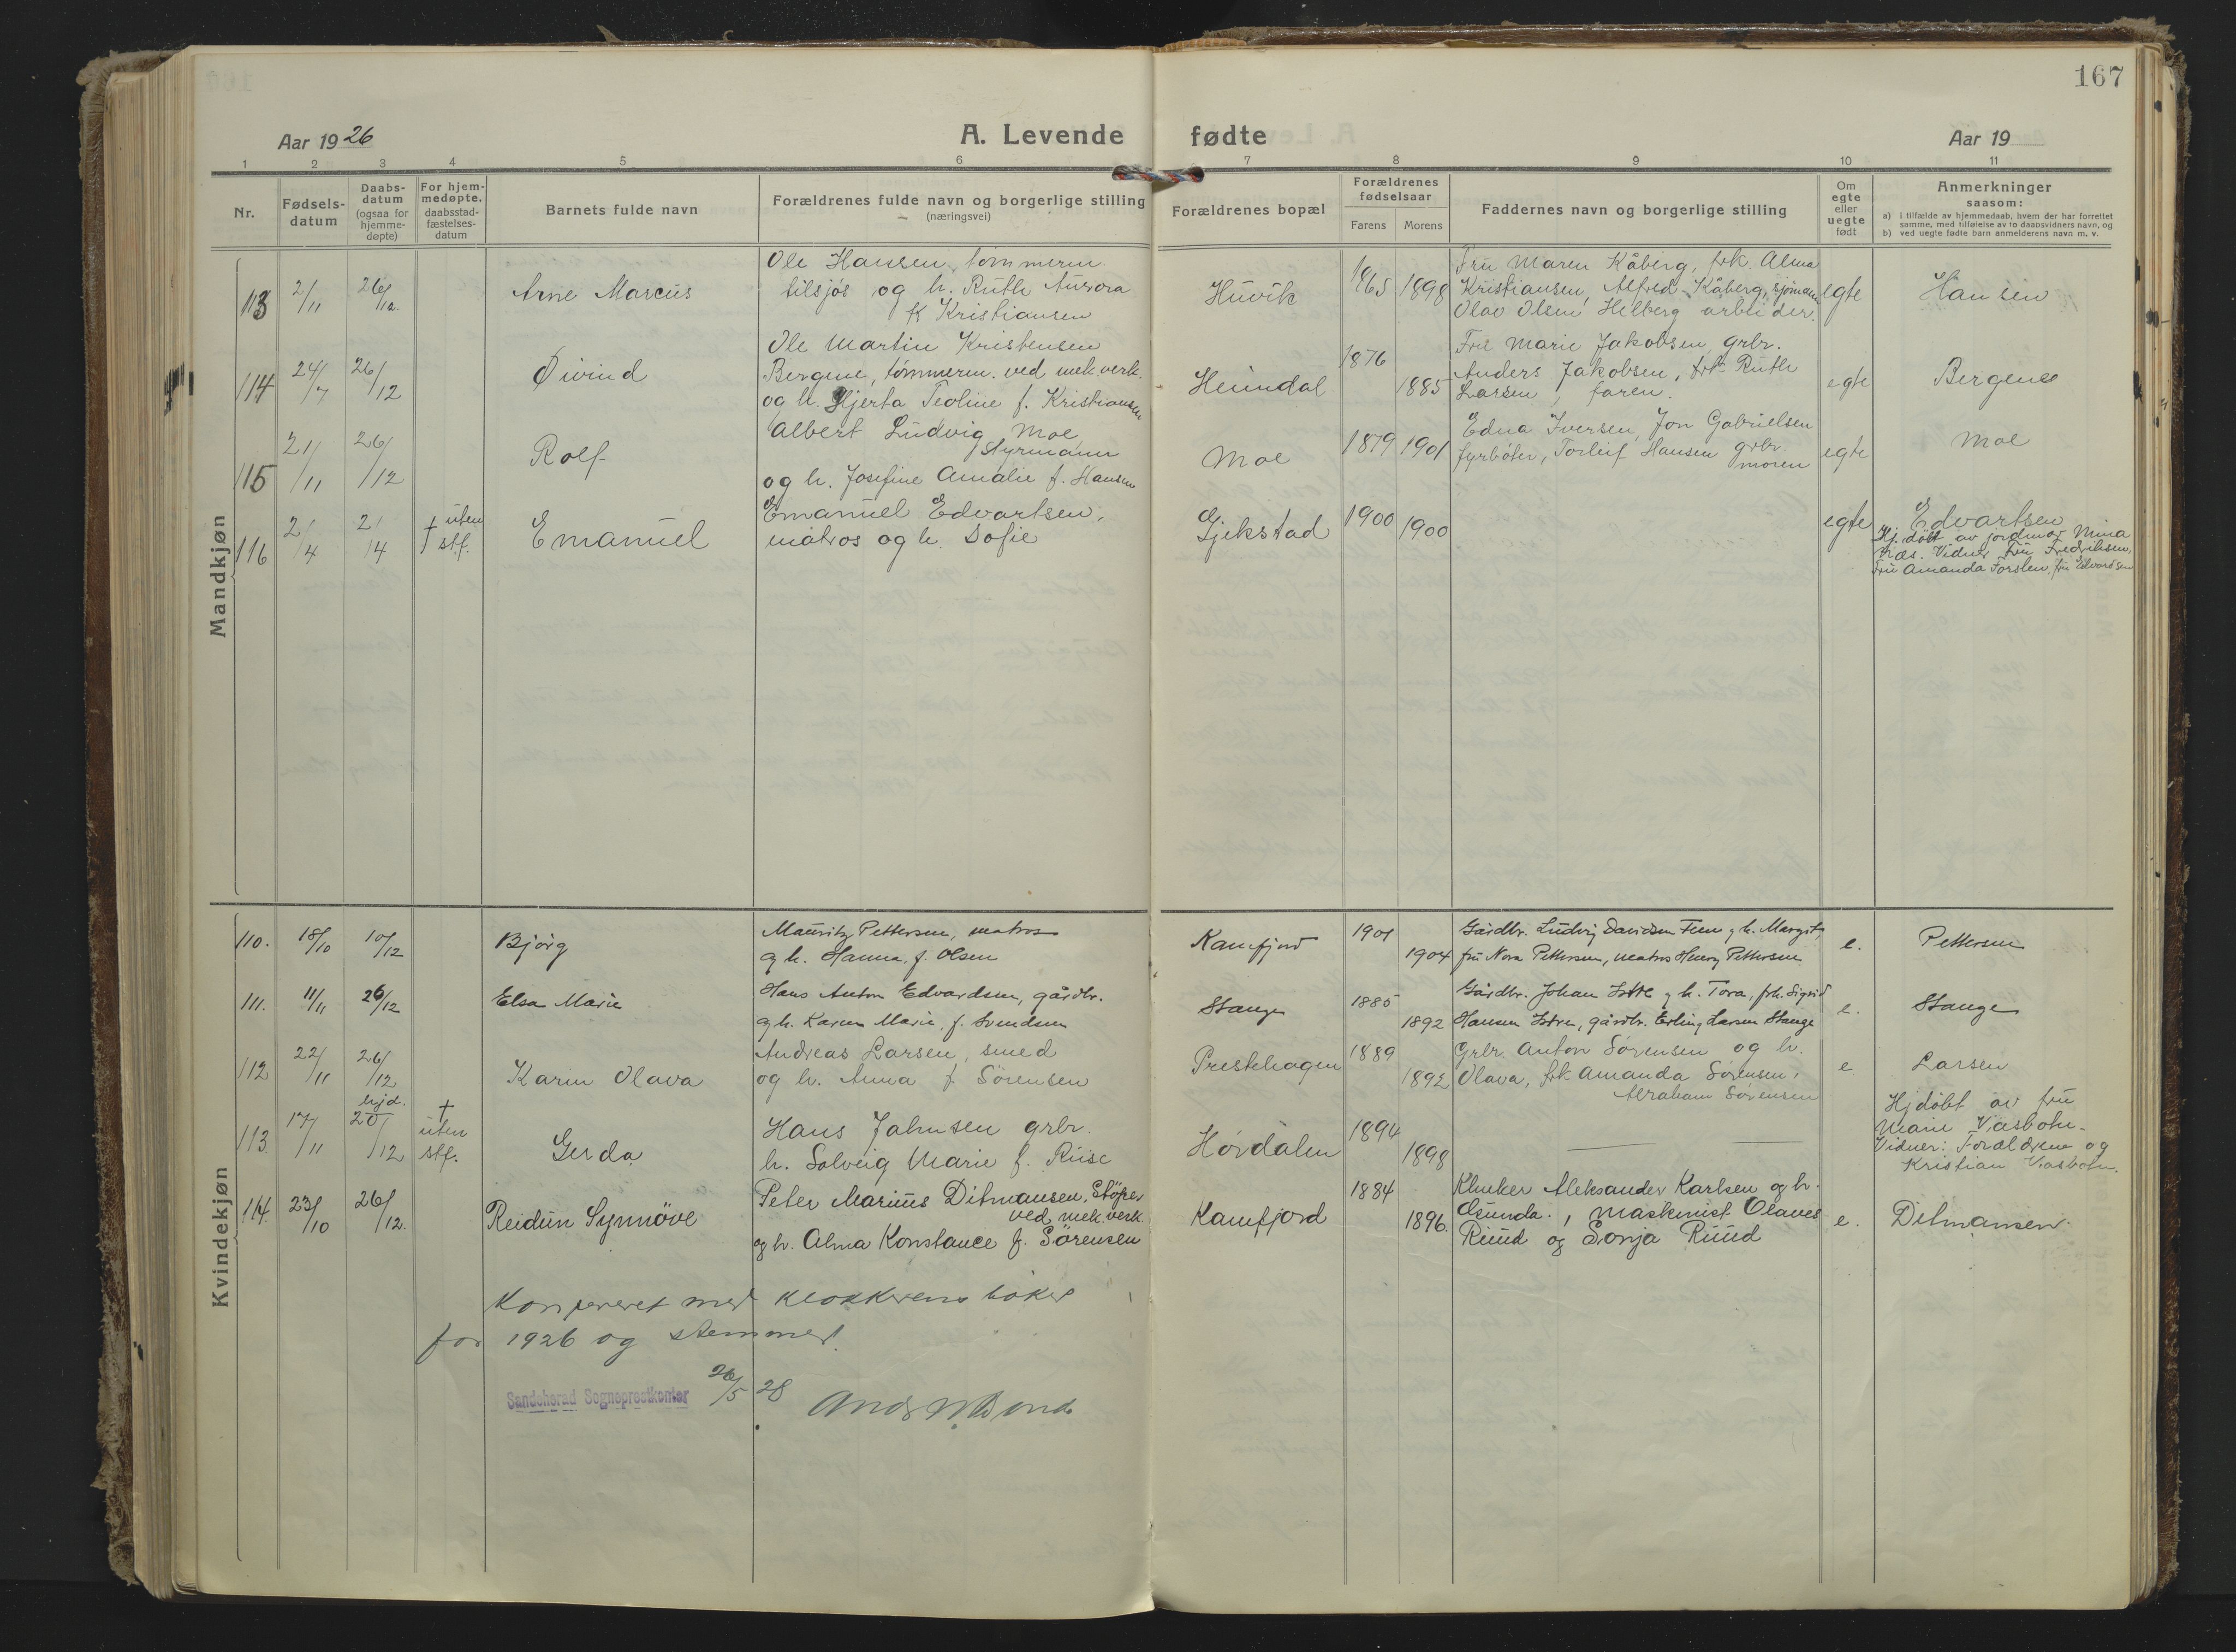 167
Aar 1926
A. Levende fødte
Aar 19
1 2 3 4 5 6 7 8 9 10 11
Nr.
Fødsels-
datum
Daabs-
datum
(ogsaa for
hjemme-
døpte)
For hjem-
medøpte.
daabsstad-
fæstelses-
datum
Barnets fulde navn
Forældrenes fulde navn og borgerlige stilling
(næringsvei)
Forældrenes bopæl
Forældrenes
fødselsaar
Farens Morens
Faddernes navn og borgerlige stilling
Om
egte
eller
uegte
født
Anmerkninger
saasom:
a) i tilfælde av hjemmedaab, hvem der har forrettet
samme, med tilføielse av to daabsvidners navn, og
b) ved uegte fødte barn anmelderens navn m. v.
Mandkjøn
113 2/11 26/12 Arne Marcus
Ole Hansen, tømmerm.
tilsjøs og h. Ruth Aurora
f. Kristiansen
Huvik 1865 1898
Fru Maren Kåberg, frk. Alma
Kristiansen, Alfred Kåberg, sjømann
Olav Olsen Helberg arbeider.
egte Hansen
114 24/7 26/12 Øivind
Ole Martin Kristensen
Bergene, tømmerm. ved mek. verk.
og h. Hjerta Teoline f. Kristiansen
Heimdal 1876 1885
Fru Marie Jakobsen, grbr.
Anders Jakobsen, frk Ruth
Larsen, faren.
egte Bergene
115 21/11 26/12 Rolf
Albert Ludvig Moe,
styrmann
og h. Josefine Amalie f. Hansen
Moe 1879 1901
Edna Iversen, Jon Gabrielsen
fyrbøter, Torleif Hansen grbr.
moren
egte Moe
116 2/4 2/4 † uten
stf.
Emanuel
Emanuel Edvartsen,
matros og h. Sofie
Gjekstad 1900 1900
egte Edvartsen
Hj. døbt av jordmor Mina
Næs. Vidner Fru Fredriksen,
Fru Amanda Torsten, fru Edvardsen
Kvindekjøn
110. 18/10 10/12 Bjørg
Mauritz Pettersen, matros
og h. Hanna, f. Olsen
Kamfjord 1901 1904
Gårdbr. Ludvig Davidsen Feen og h. Margit,
fru Nora Pettersen, matros Henry Pettersen
e. Pettersen
111. 11/11 26/12 Elsa Marie
Hans Anton Edvardsen, gårdbr.
og h. Karen Marie, f. Svendsen
Stange 1885 1892
Gårdbr. Johan Istre og h. Tora, frk. Sigrid
Hansen Istre, gårdbr. Erling Larsen Stange
e. Stange
112 22/11 26/12 Karin Olava
Andreas Larsen, smed
og h. Anna f. Sørensen
Prestehagen 1889 1892
Grbr. Anton Sørensen og h.
Olava, frk Amanda Sørensen,
Abraham Sørensen
e Larsen
113. 17/11 hjd. 20/12 † uten
stf.
Gerda
Hans Jahnsen grbr.
h. Solveig Marie f. Riise
Hørdalen 1894 1898
Hjdøbt av fru
Marie Vasbotn.
Vidner: Forældrene og
Kristian Vasbotn.
114. 23/10 26/12. Reidun Synnøve
Peter Marius Ditmansen, Støper
ved mek. verk.
og h. Alma Konstance f. Sørensen
Kamfjord 1884 1896.
Klinker Aleksander Karlsen og h.
Osunda., Maskinist Olaves
Ruud og Sonja Ruud
e. Ditmansen.
Konfereret med klokkerens bøker
for 1926 og stemmer.
Sandeherad Sogneprestkontor 26/5 28